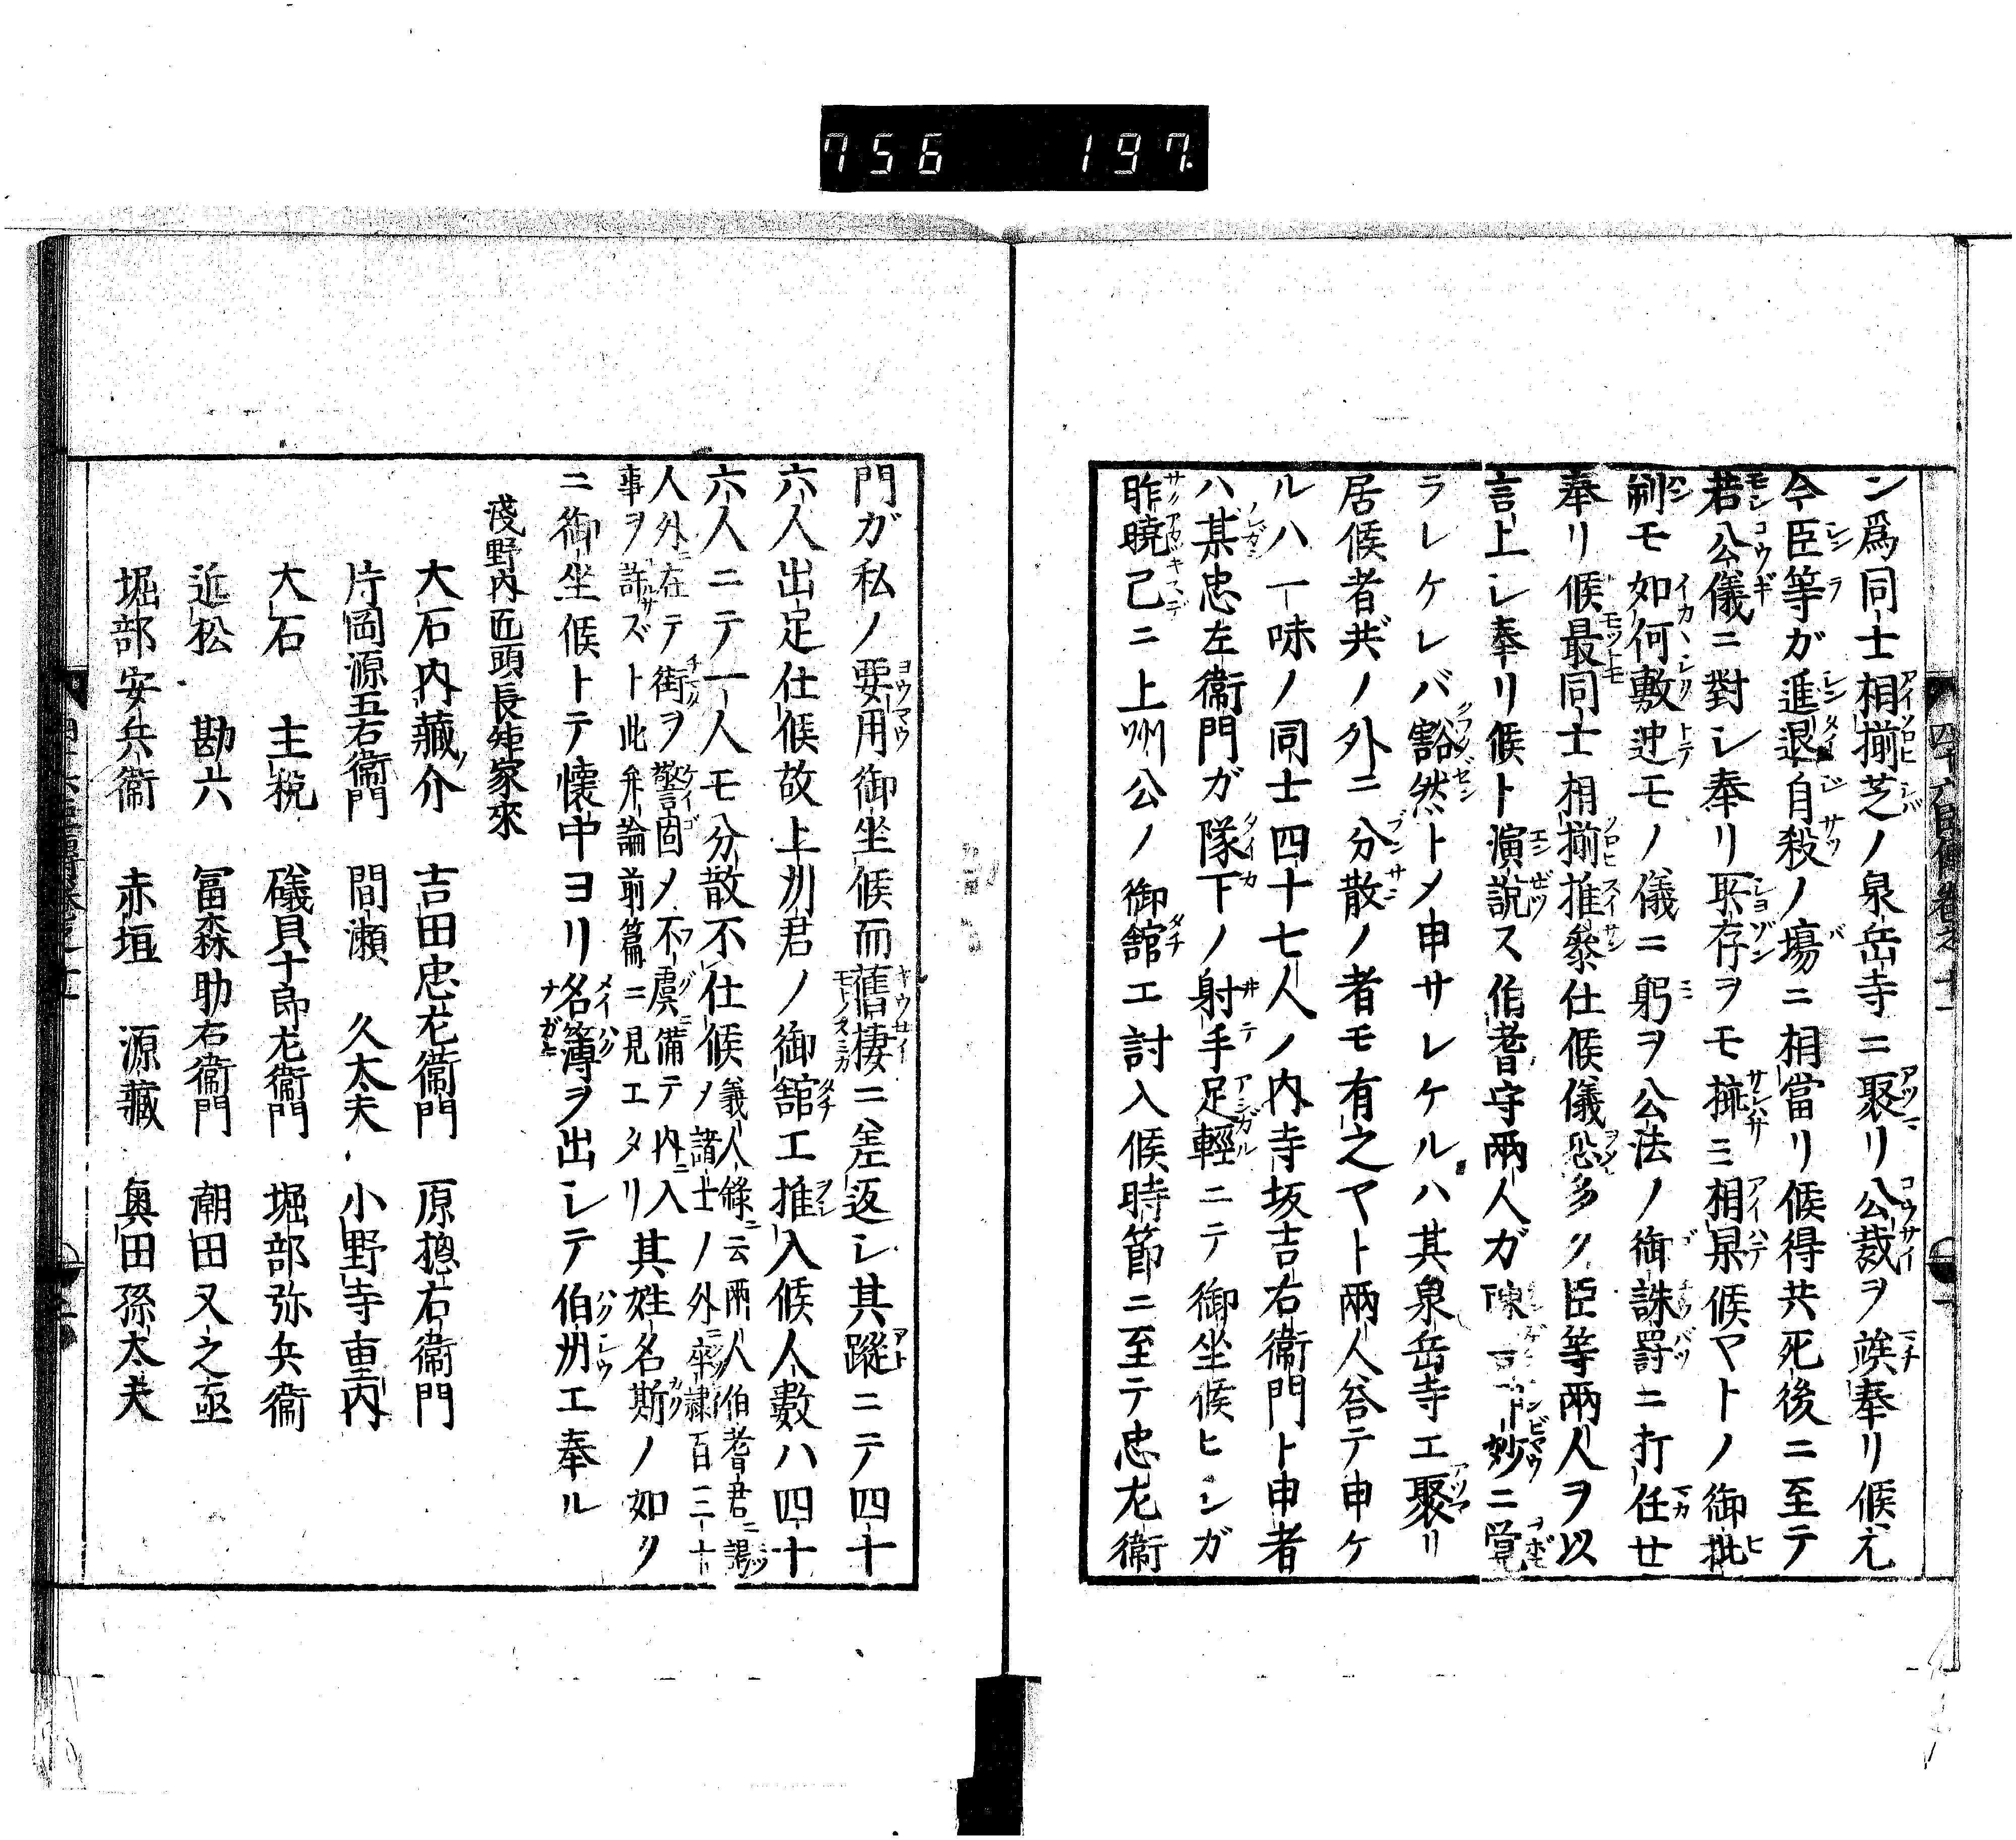 756 197
ン爲同士相揃芝ノ泉岳寺ニ聚リ公裁ヲ竢奉リ候尤
今臣等ガ進退自殺ノ塲ニ相當リ候得共死後ニ至テ
若公儀ニ對シ奉リ所存ヲモ挾ミ相果候ヤトノ御批
判モ如何敷迚モノ儀ニ躬ヲ公法ノ御誅罸ニ打任せ
奉リ候最同士相揃推參仕候儀恐多ク臣等兩人ヲ以
言上シ奉リ候ト演説ス伯耆守兩人ガ陳 妙ニ覚
ラレケレバ豁然トメ申サレケルハ其泉岳寺エ聚リ
居候者共ノ外ニ分散ノ者モ有之ヤト兩人答テ申ケ
ルハ一味ノ同士四十七人ノ内寺坂吉右衞門ト申者
ハ某忠左衞門ガ隊下ノ射手足輕ニテ御坐候ヒシガ
昨曉已ニ上州公ノ御舘エ討入候時節ニ至テ忠左衞
門ガ私ノ要用御坐候而舊棲ニ差返シ其蹤ニテ四十
六人出足仕候故上州君ノ御舘エ推入候人數ハ四十
六人ニテ一人モ分散不仕候義人録ニ云兩人伯耆君ニ謁
ノ諸士ノ外ニ卒隷百三十
人外ニ在テ街ヲ警固メ不虞ニ備テ内ニ入
事ヲ許サズト此弁論前篇ニ見エタリ其姓名斯ノ如ク
ニ御坐候トテ懷中ヨリ名簿ヲ出シテ伯州エ奉ル
淺野内匠頭長矩家來
大石内藏介 吉田忠左衞門 原摠右衞門
片岡源五右衞門 間瀬久太夫 小野寺重内
大石主税 礒貝十郎左衞門 堀部弥兵衞
近松勘六 冨森助右衞門 潮田又之亟
堀部安兵衞 赤垣源藏 奧田孫太夫